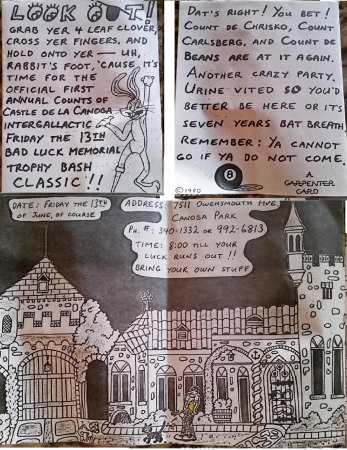 LOOK OUT!
GRAB YER 4 LEAF CLOVER,
CROSS YER FINGERS, AND
HOLD ONTO YER — UH,
RABBIT'S FOOT, 'CAUSE IT'S
TIME FOR THE
OFFICIAL FIRST
ANNUAL COUNTS OF
CASTLE DE LA CANOGA
INTERGALLACTIC
FRIDAY THE 13TH
BAD LUCK MEMORIAL
TROPHY BASH
CLASSIC!!
DAT'S RIGHT! YOU BET!
COUNT DE CHRISKO, COUNT
CARLSBERG, AND COUNT DE
BEANS ARE AT IT AGAIN.
ANOTHER CRAZY PARTY.
URINE VITED SO YOU'D
BETTER BE HERE OR IT'S
SEVEN YEARS BAT BREATH.
REMEMBER: YA CANNOT
GO IF YA DO NOT COME.
8
©1980
A
CARPENTER
CARD
DATE: FRIDAY THE 13TH
OF JUNE, OF COURSE
ADDRESS: 7511 OWENSMOUTH AVE.
CANOGA PARK
PH. #: 340-1332 OR 992-6813
TIME: 8:00 TILL YOUR
LUCK RUNS OUT!!
BRING YOUR OWN STUFF